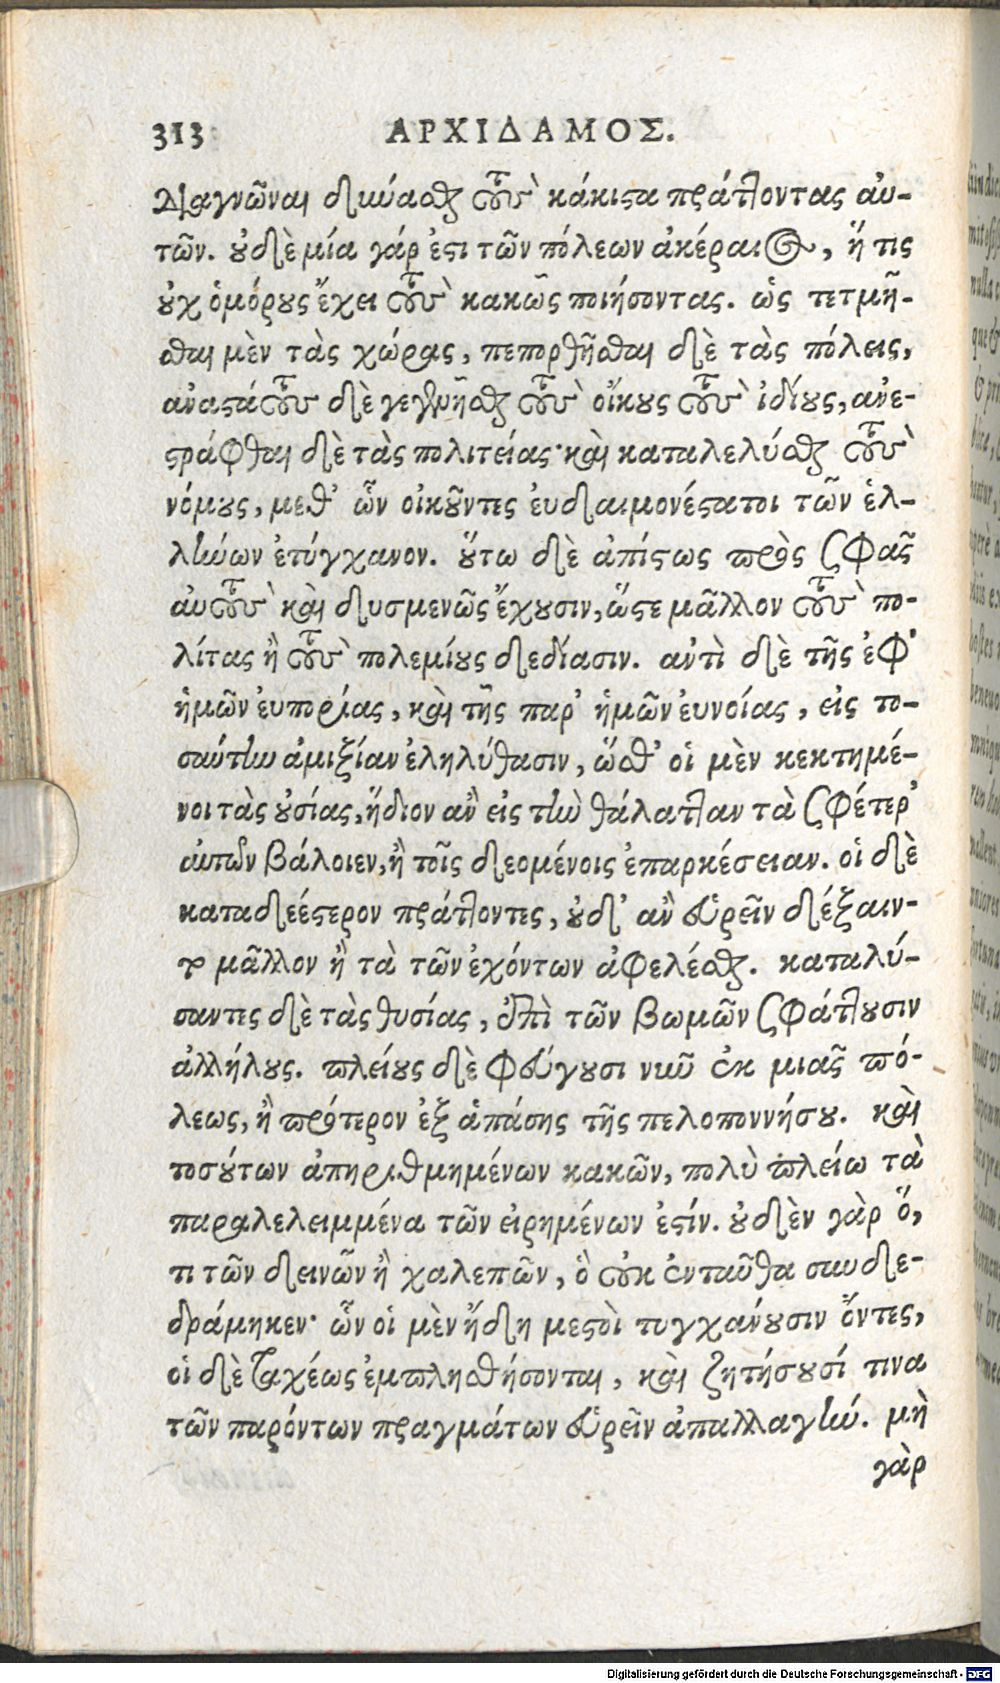 313 ΑΡΧΙΔΑΜΟΣ.
διαγνῶναι δύνασθαι τοὺς κάκιστα πράττοντας αὐ-
τῶν. οὐδὲ μία γάρ ἐστι τῶν πόλεων ἀκέραιος, ἥ τις
οὐχ ὁμόρους ἔχει τοὺς κακῶς ποιήσοντας. ὡς τετμῆ-
σθαι μὲν τὰς χώρας, πεπορθῆσθαι δὲ τὰς πόλεις,
ἀναστάτους δὲ γεγενῆσθαι τοὺς οἴκους τοὺς ἰδίους, ἀνε-
στράφθαι δὲ τὰς πολιτείας· καὶ καταλελύσθαι τοὺς
νόμους, μεθ’ ὧν οἰκοῦντες εὐδαιμονέστατοι τῶν ἑλ-
λήνων ἐτύγχανον. οὕτω δὲ ἀπίστως πρὸς σφᾶς
αὐτοὺς καὶ δυσμενῶς ἔχουσιν, ὥστε μᾶλλον τοὺς πο-
λίτας ἢ τοὺς πολεμίους δεδίασιν. ἀντὶ δὲ τῆς ἐφ’
ἡμῶν εὐπορίας, καὶ τῆς παρ’ ἡμῶν εὐνοίας, εἰς το-
σαύτην ἀμιξίαν ἐληλύθασιν, ὥσθ’ οἱ μὲν κεκτημέ-
νοι τὰς οὐσίας, ἥδιον ἂν εἰς τὴν θάλατταν τὰ σφέτερ’
αὐτῶν βάλοιεν, ἢ τοῖς δεομένοις ἐπαρκέσειαν. οἱ δὲ
καταδεέστερον πράττοντες, οὐδ’ ἂν εὑρεῖν δέξαιν-
το μᾶλλον ἢ τὰ τῶν ἐχόντων ἀφελέσθαι. καταλύ-
σαντες δὲ τὰς θυσίας, ἐπὶ τῶν βωμῶν σφάττουσιν
ἀλλήλους. πλείους δὲ φεύγουσι νῦν ἐκ μιᾶς πό-
λεως, ἢ πρότερον ἐξ ἁπάσης τῆς πελοποννήσου. καὶ
τοσούτων ἀπηριθμημένων κακῶν, πολὺ πλείω τὰ
παραλελειμμένα τῶν εἰρημένων ἐστίν. οὐδὲν γὰρ ὅ,
τι τῶν δεινῶν ἢ χαλεπῶν, ὃ οὐκ ἐνταῦθα συνδε-
δράμηκεν· ὧν οἱ μὲν ἤδη μεστοὶ τυγχάνουσιν ὄντες,
οἱ δὲ ταχέως ἐμπλησθήσονται, καὶ ζητήσουσί τινα
τῶν παρόντων πραγμάτων εὑρεῖν ἀπαλλαγήν. μὴ
γὰρ
Digitalisierung gefördert durch die Deutsche Forschungsgemeinschaft - DFG